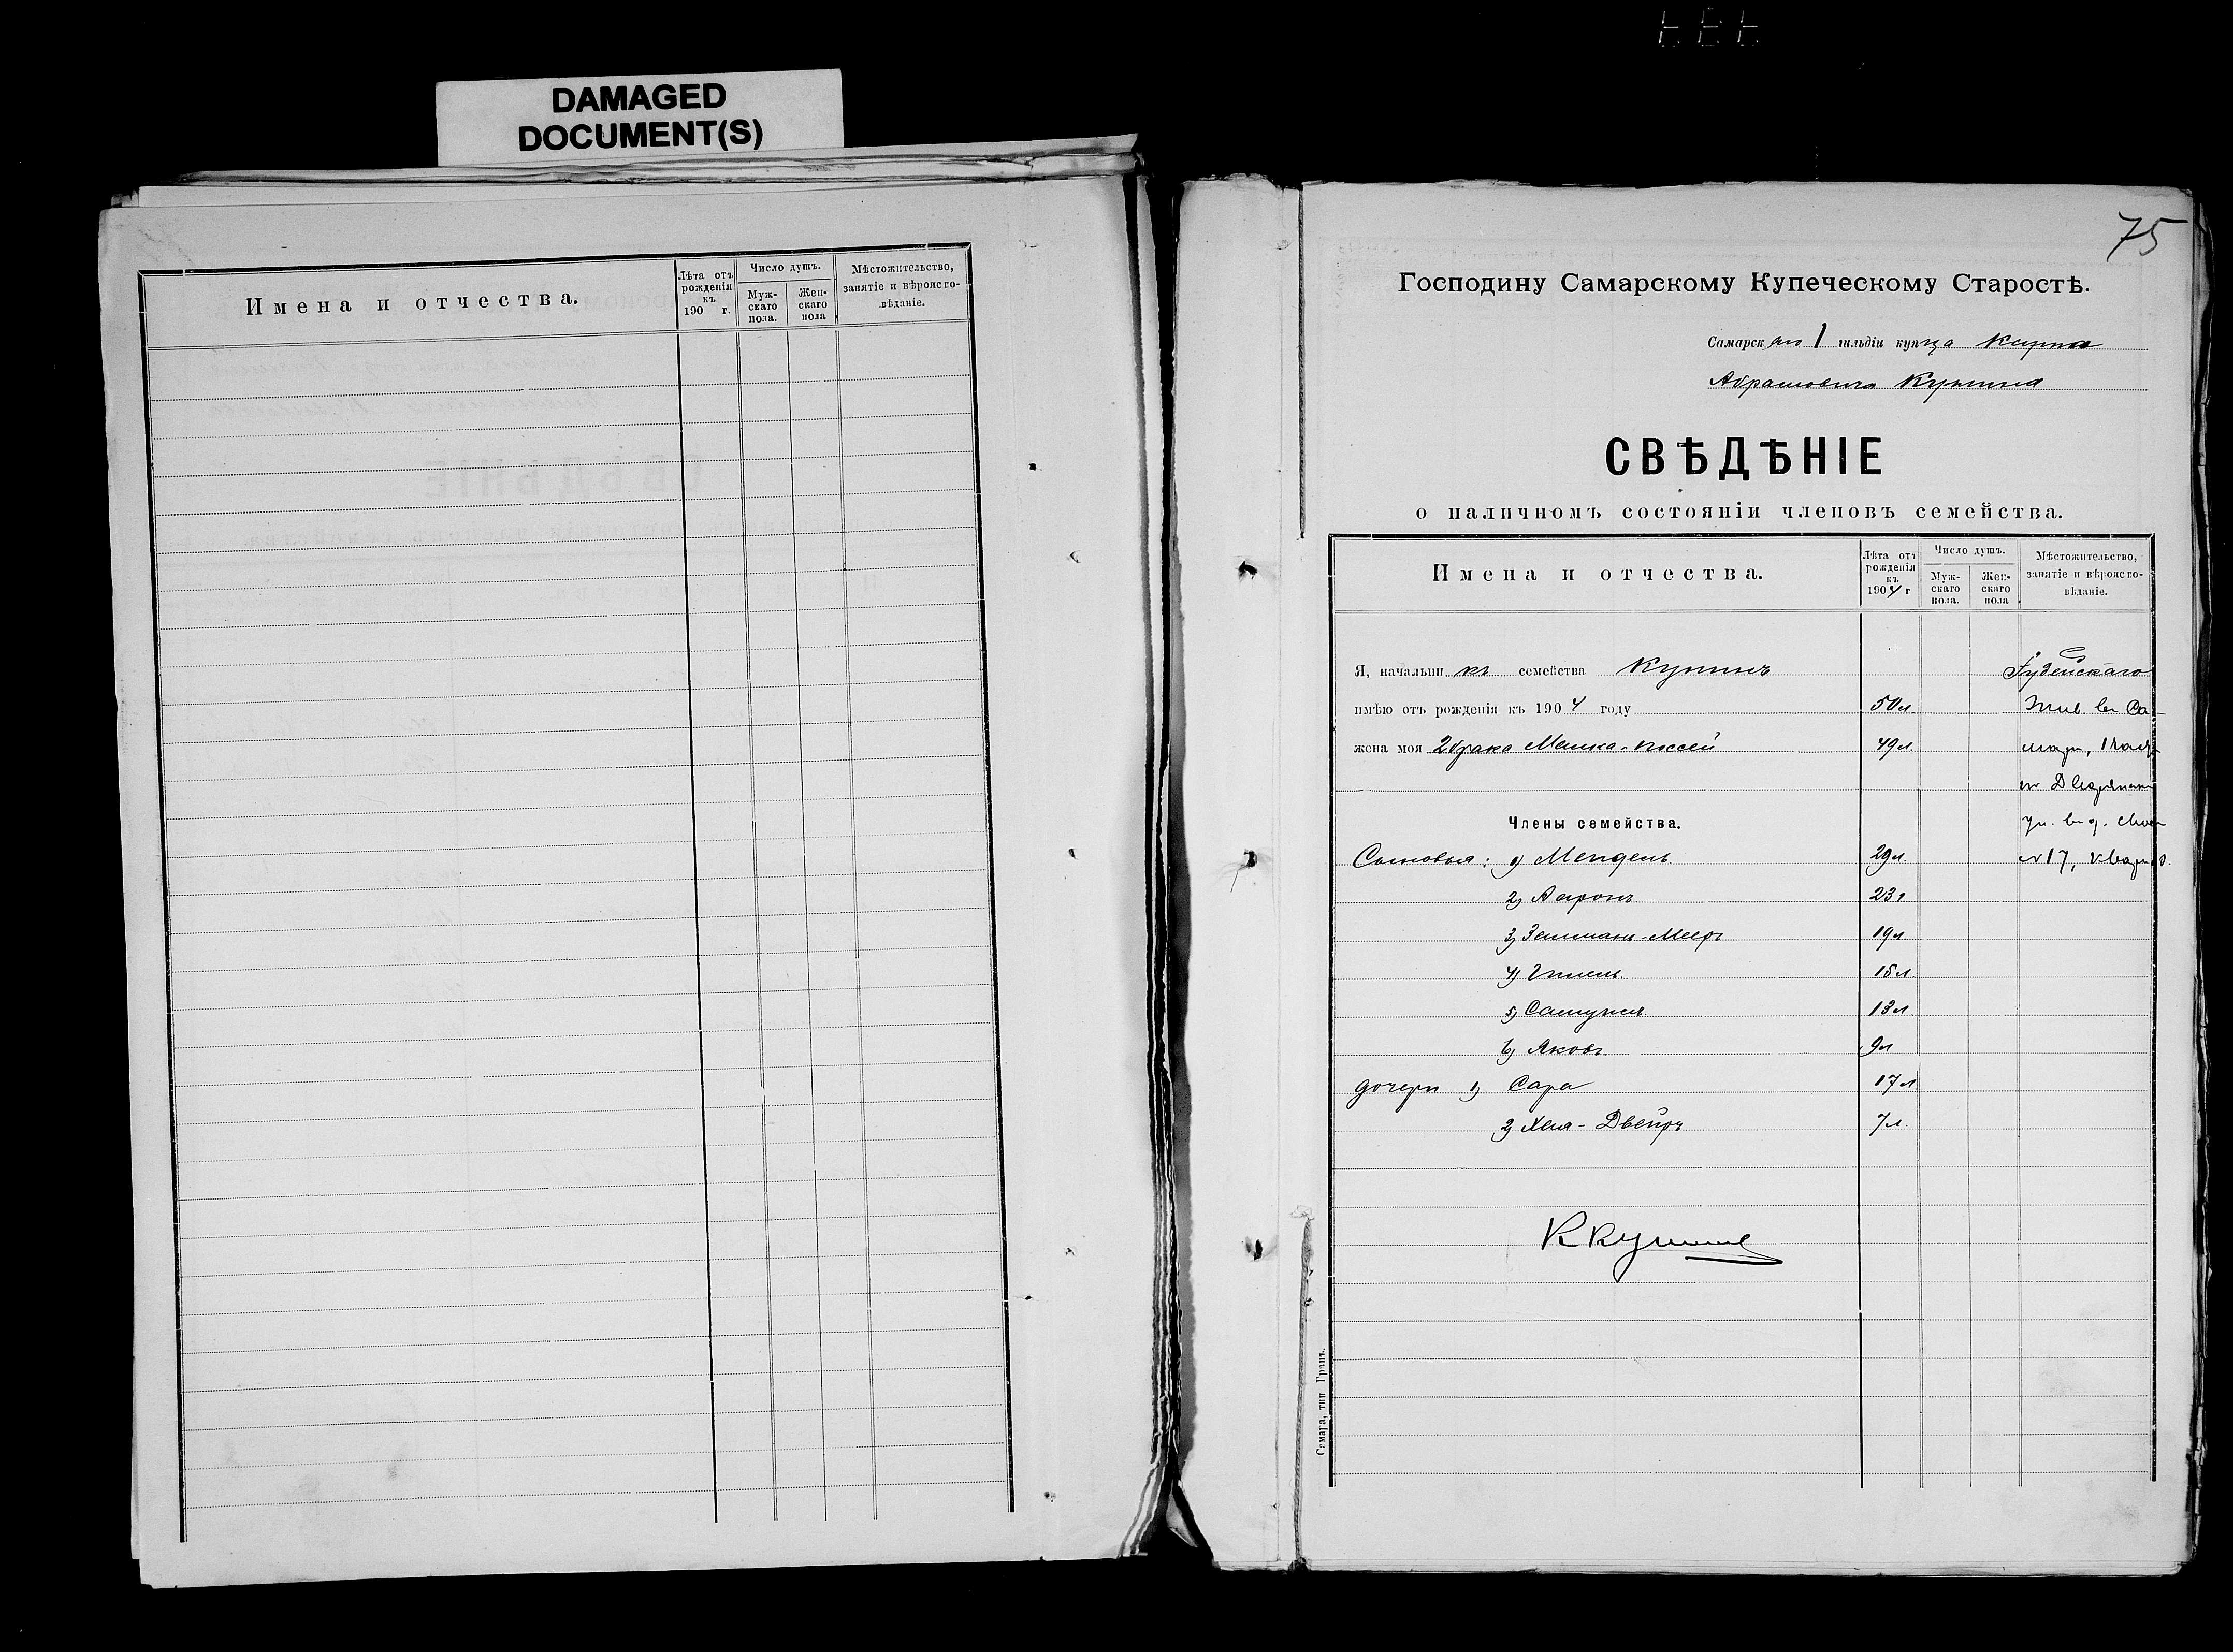 DAMAGED
DOCUMENT(S)
Имена и отчества.
Лѣта отъ рожденія къ 190 г.
Число душъ.
Мужскаго пола.
Женскаго пола
Мѣстожительство, занятіе и вѣроисповѣданіе.
75
Господину Самарскому Купеческому Старостѣ.
Самарскаго 1 гильдіи купца
Абрамовича Купина
СВѢДѢНІЕ
о наличномъ состояніи членовъ семейства.
Имена и отчества.
Лѣта отъ рожденія къ 1904 г
Число душъ.
Мужскаго пола.
Женскаго пола
Мѣстожительство, занятіе и вѣроисповѣданіе.
Я, начальникъ семейства Купинъ Іудейскаго
имѣю отъ рожденія къ 1904 году 50 л. Жив. въ Са-
жена моя 2 брака 49 л. 1 част
Члены семейства.
Сыновья: 1) Мендель 29 л. №17, кварт
2) Ааронъ 23 г
3) Зельманъ-Мееръ 19 л
4) 15 л.
5) Самуилъ 13 л
6) Яковъ 9 л
дочери 1) Сара 17 л.
2) Хая-Двейра 7 л.
Самара, тип Гранъ.